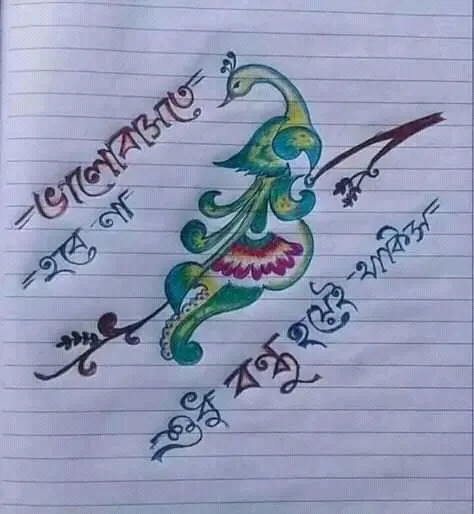 =ভালোবাসতে=
=হবে না
শুধু বন্ধু হয়েই থাকিস=